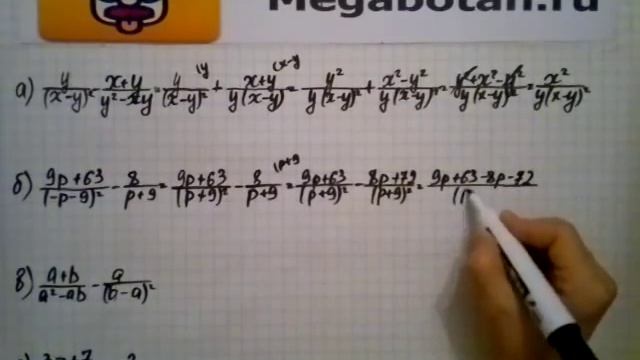 Megabotan.ru
а) y/(x-y)² - (x+y)/(y²-xy) = y/(x-y)² (y + (x+y)/(y(x-y)) (x-y = y²/(y(x-y)²) + (x²-y²)/(y(x-y)²) = (y²+x²-y²)/(y(x-y)²) = x²/(y(x-y)²)
б) (9p+63)/(-p-9)² - 8/(p+9) = (9p+63)/(p+9)² - 8/(p+9) (p+9 = (9p+63)/(p+9)² - (8p+72)/(p+9)² = (9p+63-8p-72)/(
в) (a+b)/(a²-ab) - a/(b-a)²